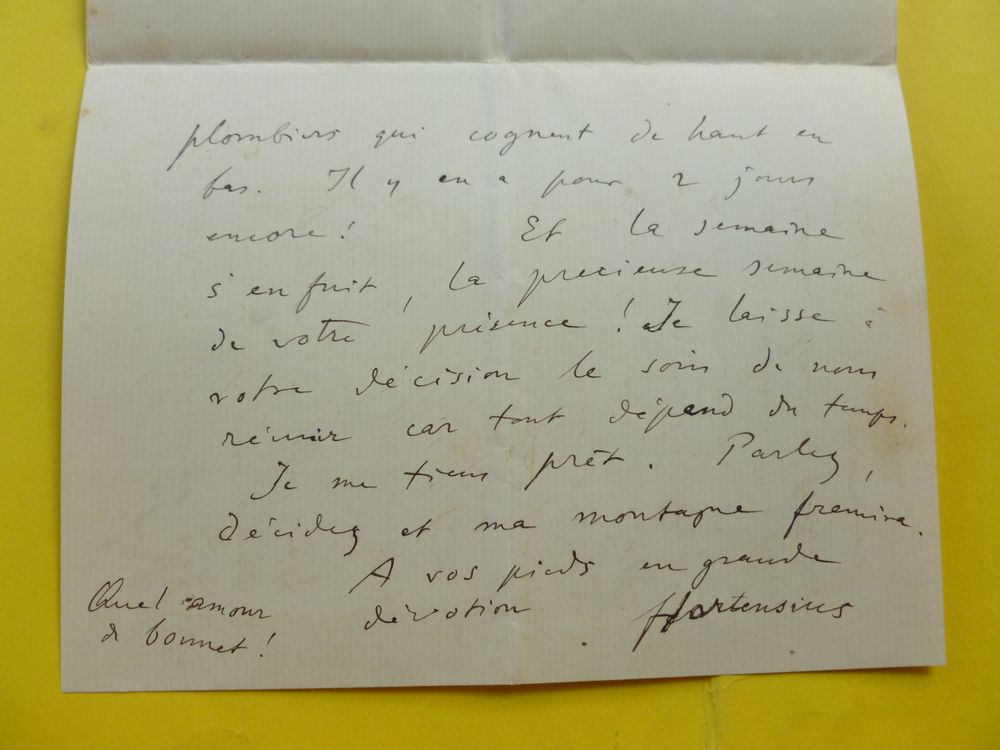 plombiers qui cognent de haut en
bas. Il y en a pour 2 jours
encore ! Et la semaine
s'enfuit, la precieuse semaine
de votre présence ! Je laisse à
votre décision le soin de nous
réunir car tout dépend du temps.
Je me tiens prêt. Parlez,
décidez et ma montagne fremira.
A vos pieds en grande
dévotion Hortensius
Quel amour
de bonnet !